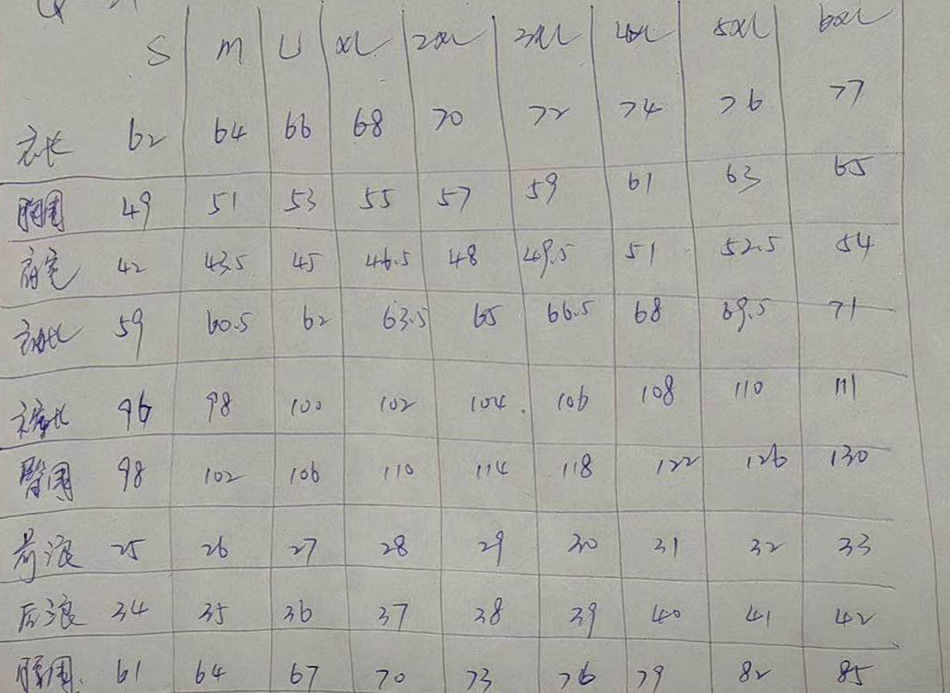 S M L XL 2XL 3XL 4XL 5XL 6XL
衣长 62 64 66 68 70 72 74 76 77
胸围 49 51 53 55 57 59 61 63 65
肩宽 42 43.5 45 46.5 48 49.5 51 52.5 54
衣袖长 59 60.5 62 63.5 65 66.5 68 69.5 71
裤长 96 98 100 102 104 106 108 110 111
臀围 98 102 106 110 114 118 122 126 130
前浪 25 26 27 28 29 30 31 32 33
后浪 34 35 36 37 38 39 40 41 42
腰围 61 64 67 70 73 76 79 82 85